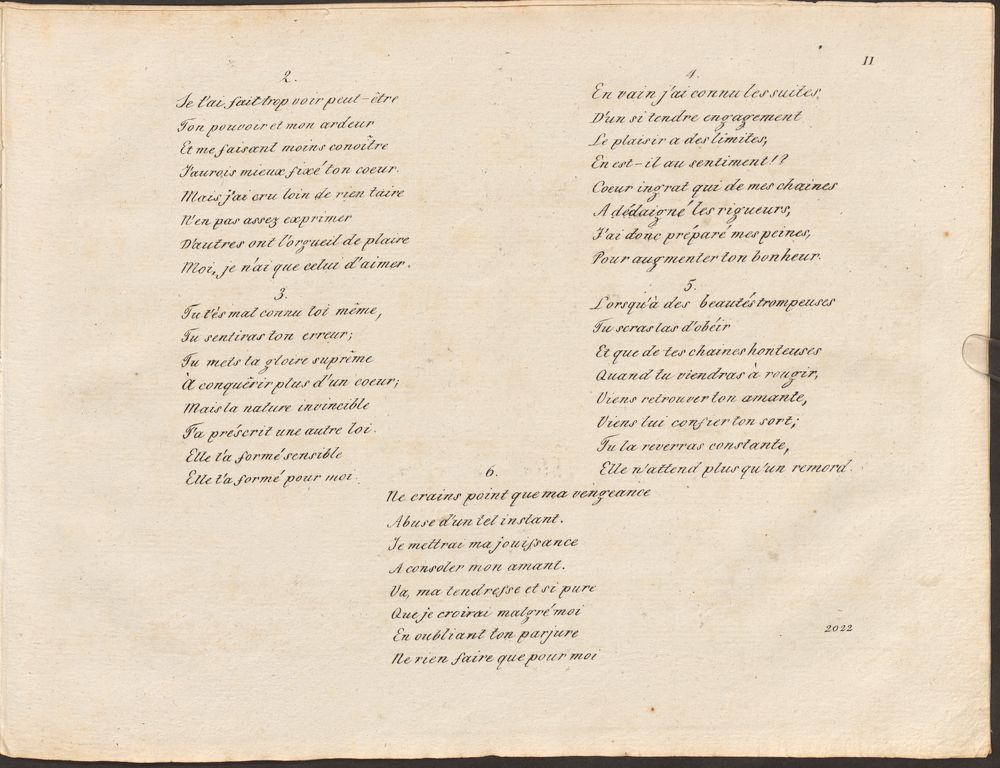 11
2.
Je t'ai fait trop voir peut-être
Ton pouvoir et mon ardeur
Et me faisant moins conoître
J'aurois mieux fixé ton coeur.
Mais j'ai cru loin de rien taire
N'en pas assez exprimer
D'autres ont l'orgueil de plaire
Moi, je n'ai que celui d'aimer.
3.
Tu t'és mal connu toi même,
Tu sentiras ton erreur;
Tu mets ta gloire suprême
À conquérir plus d'un coeur;
Mais la nature invincible
T'a préscrit une autre loi.
Elle t'a formé sensible
Elle t'a formé pour moi.
4.
En vain j'ai connu les suites,
D'un si tendre engagement
Le plaisir a des limites,
En est-il au sentiment!?
Coeur ingrat qui de mes chaines
A dédaigné les rigueurs,
J'ai donc préparé mes peines,
Pour augmenter ton bonheur.
5.
Lorsqu'à des beautés trompeuses
Tu seras las d'obéir
Et que de tes chaines honteuses
Quand tu viendras à rougir,
Viens retrouver ton amante,
Viens lui confier ton sort;
Tu la reverras constante,
Elle n'attend plus qu'un remord.
6.
Ne crains point que ma vengeance
Abuse d'un tel instant.
Je mettrai ma jouissance
A consoler mon amant.
Va, ma tendresse et si pure
Que je croirai malgré moi
En oubliant ton parjure
Ne rien faire que pour moi
2022